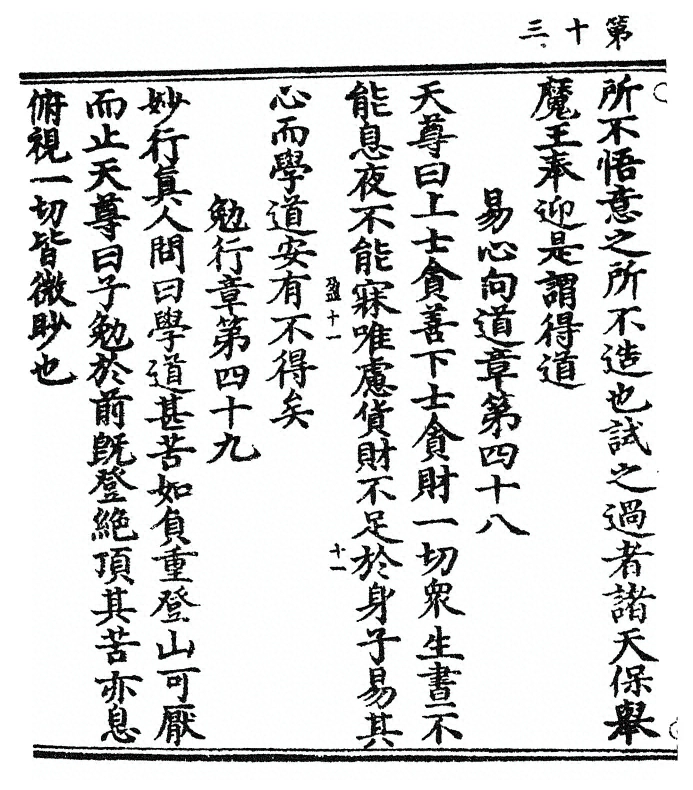 第十三
所不悟意之所不造也試之過者諸天保舉
魔王奉迎是謂得道
易心向道章第四十八
天尊曰上士貪善下士貪財一切衆生晝不
能息夜不能寐唯慮貨財不足於身子易其
盈十一
十一
心而學道安有不得矣
勉行章第四十九
妙行眞人問曰學道甚苦如負重登山可厭
而止天尊曰子勉於前旣登絶頂其苦亦息
俯視一切皆微眇也